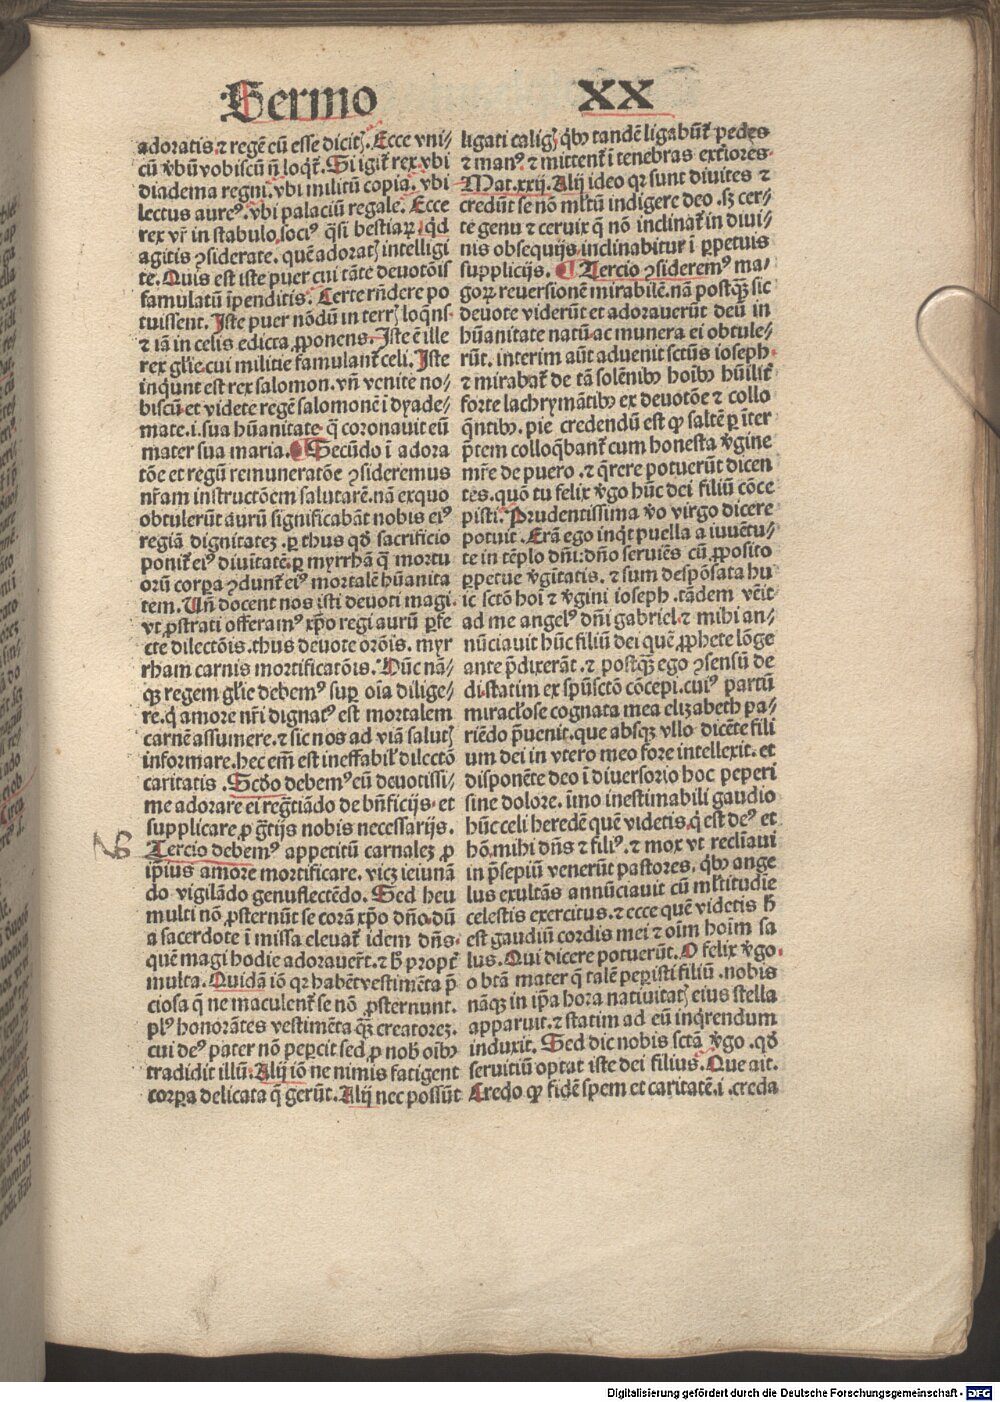 Sermo XX
adoratis. ⁊ regē cū esse dicitꝭ. Ecce vni⸗
cū v̄bū vobiscū nō loqt̄. Si igit̄ rex. vbi
diadema regni. vbi militū copia. vbi
lectus aureꝰ. vbi palaciū regale. Ecce
rex vr̄ in stabulo. sociꝰ q̄si bestiaꝝ. qd
agitis ꝯsiderate. quē adoratꝭ intelligi
te. Quis est iste puer cui tāte deuotōis
famulatū īpenditis. Certe rn̄dere po
tuissent. Iste puer nōdū in terrꝭ loqns.
⁊ iā in celis edicta ꝓponens. Iste ē ille
rex glīe cui militie famulant̄ celi. Iste
inqunt est rex salomon. vn̄ venite no⸗
biscū et videte regē salomonē ī dyade⸗
mate .i. sua hūanitate q̄ coronauit eū
mater sua maria. ¶ Secūdo ī adora
tōe et regū remuneratōe ꝯsideremus
nr̄am instructōem salutarē. nā ex quo
obtulerūt aurū significabāt nobis eiꝰ
regiā dignitatez. ꝑ thus qd̄ sacrificio
ponit̄ eiꝰ diuitatē. ꝑ myrrhā q̄ mortu
orū corpꝑa ꝯdunt̄ eiꝰ mortalē hūanita
tem. Un̄ docent nos isti deuoti magi.
vt ꝓstrati offeramꝰ xp̄o regi aurū ꝑfe
cte dilectōis. thus deuote orōis. myr
rham carnis mortificatōis. Nūc nā⸗
qꝫ regem glīe debemꝰ suꝑ oīa dilige⸗
re. q̄ amore nr̄i dignatꝰ est mortalem
carnē assumere. ⁊ sic nos ad viā salutꝭ
informare. hec em̄ est ineffabil̓ dilectō
caritatis. Scd̄o debemꝰ eū deuotissi⸗
me adorare ei regr̄tiādo de bn̄ficijs. et
supplicare ꝓ gr̄tijs nobis necessarijs.
NB
Tercio debemꝰ appetitū carnalez ꝓ
ip̄ius amore mortificare. vicꝫ ieiunā
do vigilādo genuflectēdo. Sed heu
multi nō ꝓsternūt se corā xp̄o dn̄o. dū
a sacerdote ī missa eleuat̄ idem dn̄s.
quē magi hodie adorauer̄t. ⁊ ħ propt̄
multa. Quidā iō qr habēt vestimēta p̄
ciosa q̄ ne maculent̄ se nō ꝓsternunt.
plꝰ honorātes vestimēta qꝫ̄ creatorez.
cui deꝰ pater nō peꝑcit sed ꝓ nob̄ oībꝰ
tradidit illū. Alij iō ne nimis fatigent
corpꝑa delicata q̄ gerūt. Alij nec possūt
ligati caligꝭ q̄bꝰ tandē ligabūt̄ pedes
⁊ manꝰ ⁊ mittent̄ ī tenebras exteriores.
Mat. xxij. Alij ideo qr sunt diuites ⁊
credūt se nō ml̄tū indigere deo. sꝫ cer⸗
te genu ⁊ ceruix q̄ nō inclinat̄ in diui⸗
nis obsequijs inclinabitur ī ꝑpetuis
supplicijs. ¶ Tercio ꝯsideremꝰ ma⸗
goꝝ reuersionē mirabilē. nā postqꝫ̄ sic
deuote viderūt et adorauerūt deū in
hūanitate natū ac munera ei obtule⸗
rūt. interim aūt aduenit sctūs ioseph.
⁊ mirabat̄ de tā solēnibꝰ hoībꝰ hūilit̄
forte lachrymātibꝰ ex deuotōe ⁊ collo
q̄ntibꝰ. pie credendū est ꝙ saltē ꝑ īter
p̄tem colloq̄bant̄ cum honesta v̄gine
mr̄e de puero. ⁊ q̄rere potuerūt dicen
tes. quō tu felix v̄go hūc dei filiū cōce
pisti. Prudentissima v̄o virgo dicere
potuit. Erā ego inqt̄ puella a iuuētu⸗
te in tēplo dn̄i: dn̄o seruiēs cū ꝓposito
ꝑpetue v̄gītatis. ⁊ sum despōsata hu
ic sctō hoī ⁊ v̄gini ioseph. tādem vēit
ad me angelꝰ dn̄i gabriel. ⁊ mihi an⸗
nūciauit hūc filiū dei quē ꝓphete lōge
ante p̄dixerāt. ⁊ postqꝫ̄ ego ꝯsensū de
di. statim ex spū sctō cōcepi. cuiꝰ partū
miracl̓ose cognata mea elizabeth pa⸗
riēdo p̄uenit. que absqꝫ vllo dicēte fili
um dei in vtero meo fore intellexit. et
disponēte deo ī diuersorio hoc peperi
sine dolore. īmo inestimabili gaudio
hūc celi heredē quē videtis. q̄ est deꝰ et
hō. mihi dn̄s ⁊ filiꝰ. ⁊ mox vt reclīaui
in p̄sepiū venerūt pastores. q̄bꝰ ange
lus exultās annūciauit cū ml̄titudie
celestis exercitus. ⁊ ecce quē videtis ħ
est gaudiū cordis mei ⁊ oīm hoīm sa
lus. Qui dicere potuerūt. O felix v̄go.
o btā mater q̄ talē peꝑisti filiū. nobis
nāqꝫ in ip̄a hora natiuitatꝭ eius stella
apparuit. ⁊ statim ad eū inq̄rendum
induxit. Sed dic nobis sctā v̄go. qd̄
seruitiū optat iste dei filius. Que ait.
Credo ꝙ fidē spem et caritatē. i. creda
Digitalisierung gefördert durch die Deutsche Forschungsgemeinschaft - DFG